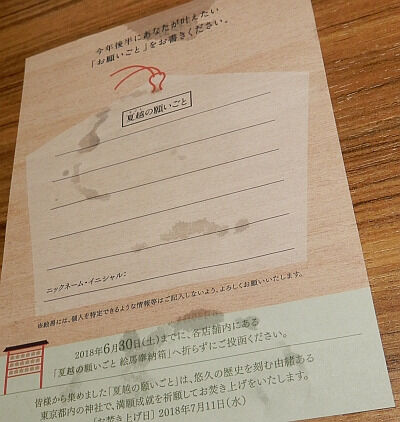 今年後半にあなたが叶えたい
「お願いごと」をお書きください。
夏越の願いごと
ニックネーム・イニシャル：
※絵馬には、個人を特定できるような情報等はご記入しないよう、よろしくお願いいたします。
2018年6月30日(土)までに、各店舗内にある
「夏越の願いごと 絵馬奉納箱」へ折らずにご投函ください。
皆様から集めました「夏越の願いごと」は、悠久の歴史を刻む由緒ある
東京都内の神社で、満願成就を祈願してお焚き上げをいたします。
お焚き上げ日］2018年7月11日(水)